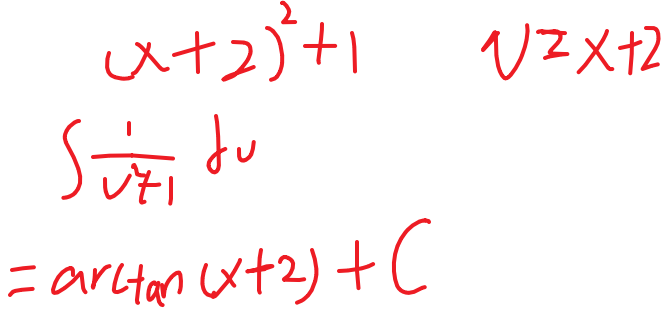 (x+2)²+1 u=x+2
∫ 1/(u²+1) du
= arctan(x+2) + C